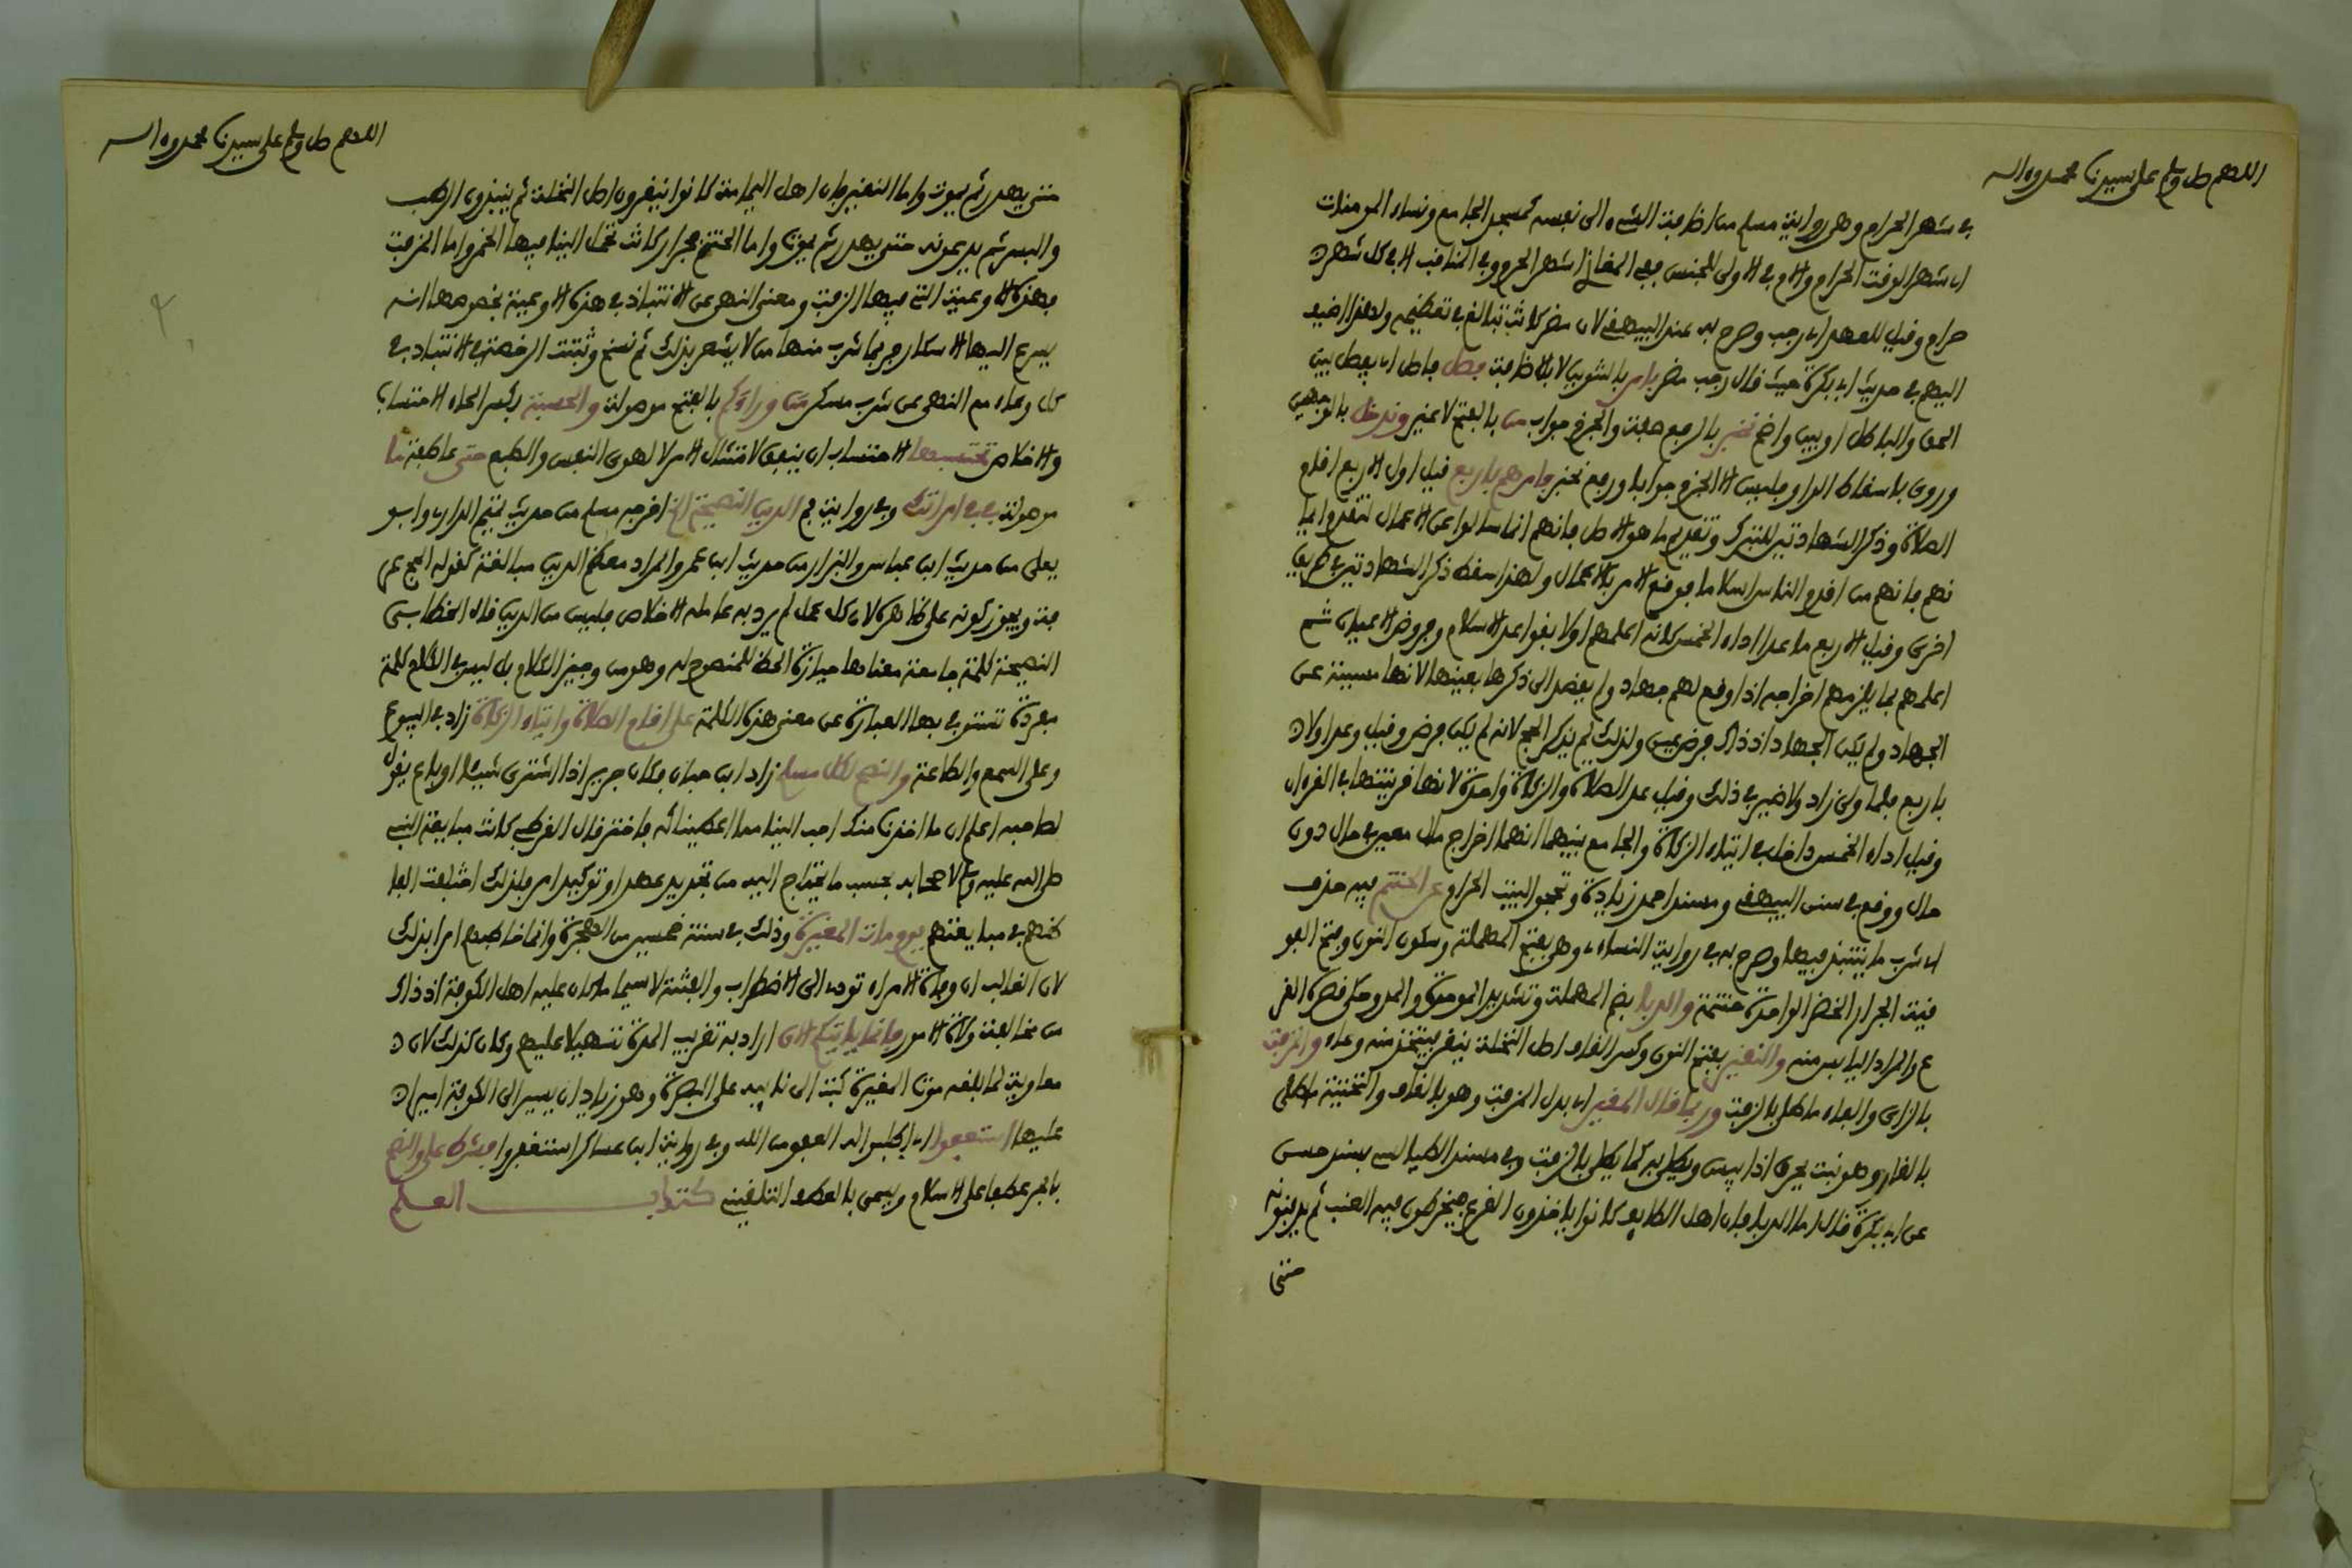 اللهم صل وسلم على سيدنا محمد وءاله
في شهر الحرام وهي رواية مسلم من اضافة الشيء الى نفسه كمسجد الجامع ونساء المومنات
اي شهر الوقت الحرام والام في الاولى للجنس ففي المغازي اشهر الحرم وفي المناقب الا في كل شهر
حرام وقيل للعهد اي رجب وصرح به عند البيهقي لان مضر كانت تبالغ في تعظيمه ولهذا اضيف
اليهم في حديث ابي بكرة حيث قال رجب مضر بامر بالتنوين لا بالاضافة فصل فاصل اي يفصل بين
الحق والباطل او بين واضح نخبر بالرفع صفة والجزم جواب من بالفتح لا غير وندخل بالوجهين
وروي باسقاط الواو فليس الا الجزم جوابا ورفع نخبر وامرهم باربع قيل اول الاربع اقام
الصلاة وذكر الشهادتين للتبرك وتقديم ما هو الاصل فانهم انما سالوا عن الاعمال لتقدم ايما
نهم فانهم من اقدم الناس اسلاما فوقع الامر بالاعمال ولهذا سقط ذكر الشهادتين في طريق
اخرى وقيل الاربع ما عدا اداء الخمس كانه اعلمهم اولا بقواعد الاسلام وفروض الاعيان ثم
اعلمهم بما يلزمهم اخراجه اذا وقع لهم جهاد ولم يقصد الى ذكرها بعينها لانها مسببة عن
الجهاد ولم يكن الجهاد اذ ذاك فرض عين ولذلك لم يذكر الحج لانه لم يكن فرض وقيل وعد اولا
باربع فلما وفى زاد ولا ضير في ذلك وقيل عد الصلاة والزكاة واحدة لانها قرينتها في القرءان
وقيل اداء الخمس داخل في ايتاء الزكاة والجامع بينهما انهما اخراج مال معين في حال دون
حال ووقع في سنن البيهقي ومسند احمد زيادة وتحجوا البيت الحرام عن الحنتم فيه حذف
اي شرب ما ينتبذ فيها وصرح به في رواية النساءي وهي بفتح المهملة وسكون النون وفتح الفو
قية الجرار الخضر الواحدة حنتمة والدبا بضم المهملة وتشديد الموحدة والمد وحكي قصره القر
ع والمراد اليابس منه والنقير بفتح النون وكسر القاف اصل النخلة ينقر فيتخذ منه وعاء والمزفت
بالزاي والفاء ما طلي بالزفت وربما قال المقير اي بدل المزفت وهو بالقاف والتحتية ما طلي
بالقار وهو نبت يحرق اذا يبس ويطلى به كما يطلى بالزفت وفي مسند الطيالسي بسند حسن
عن ابي بكرة قال اما الدبا فان اهل الطايف كانوا ياخذون القرع فيخرطون فيه العنب ثم يدفنونه
حتى
اللهم صل وسلم على سيدنا محمد وءاله
حتى يهدر ثم يموت واما النقير فان اهل اليمامة كانوا ينقرون اصل النخلة ثم ينبذون الرطب
والبسر ثم يدعونه حتى يهدر ثم يموت واما الحنتم فجرار كانت تحمل الينا فيها الخمر واما المزفت
فهذه الاوعية التي فيها الزفت ومعنى النهي عن الانتباذ في هذه الاوعية بخصوصها انه
يسرع اليها الاسكار فربما شرب منها من لا يشعر بذلك ثم نسخ وثبتت الرخصة في الانتباذ في
كل وعاء مع النهي عن شرب مسكر من وراءكم بالفتح موصولة والحسبة بكسر الحاء الاحتساب
والاخلاص تحتسبها الاحتساب ان ينفق لامتثال الامر لا لهوى النفس والطبع حتى عاطفة ما
موصولة في في امراتك وفي رواية فم الدين النصيحة الخ اخرجه مسلم من حديث تميم الداري وابو
يعلى من حديث ابن عباس والبزار من حديث ابن عمر والمراد معظم الدين مبالغة كقوله الحج عر
فة ويجوز كونه على ظاهره لان كل عمل لم يرد به عامله الاخلاص فليس من الدين قال الخطابي
النصيحة كلمة جامعة معناها حيازة الحظ للمنصوح له وهو من وجيز الكلام بل ليس في الكلام كلمة
مفردة تستوفى بها العبارة عن معنى هذه الكلمة على اقام الصلاة وايتاء الزكاة زاد في البيوع
وعلى السمع والطاعة والنصح لكل مسلم زاد ابن حبان فكان جرير اذا اشترى شيئا او باع يقول
لصاحبه اعلم ان ما اخذنا منك احب الينا مما اعطيناكه فاختر قال القرطبي كانت مبايعة النبي
صلى الله عليه وسلم لاصحابه بحسب ما يحتاج اليه من تجديد عهد او توكيد امر فلذلك اختلفت الفا
ظهم في مبايعتهم يوم مات المغيرة وذلك في سنة خمسين من الهجرة وانما خاطبهم امرا بذلك
لان الغالب ان وفاة الامراء تودي الى الاضطراب والفتنة لا سيما ما كان عليه اهل الكوفة اذ ذاك
من مخالفة ولاة الامور فانما ياتيكم الان اراد به تقريب المدة تسهيلا عليهم وكان كذلك لان
معاوية لما بلغه موت المغيرة كتب الى نايبه على البصرة وهو زياد ان يسير الى الكوفة اميرا
عليها استعفوا اي اطلبوا له العفو من الله وفي رواية ابن عساكر استغفروا فشرط علي والنصح
بالجر عطفا على الاسلام ويسمى بالعطف التلقيني كتاب العلم